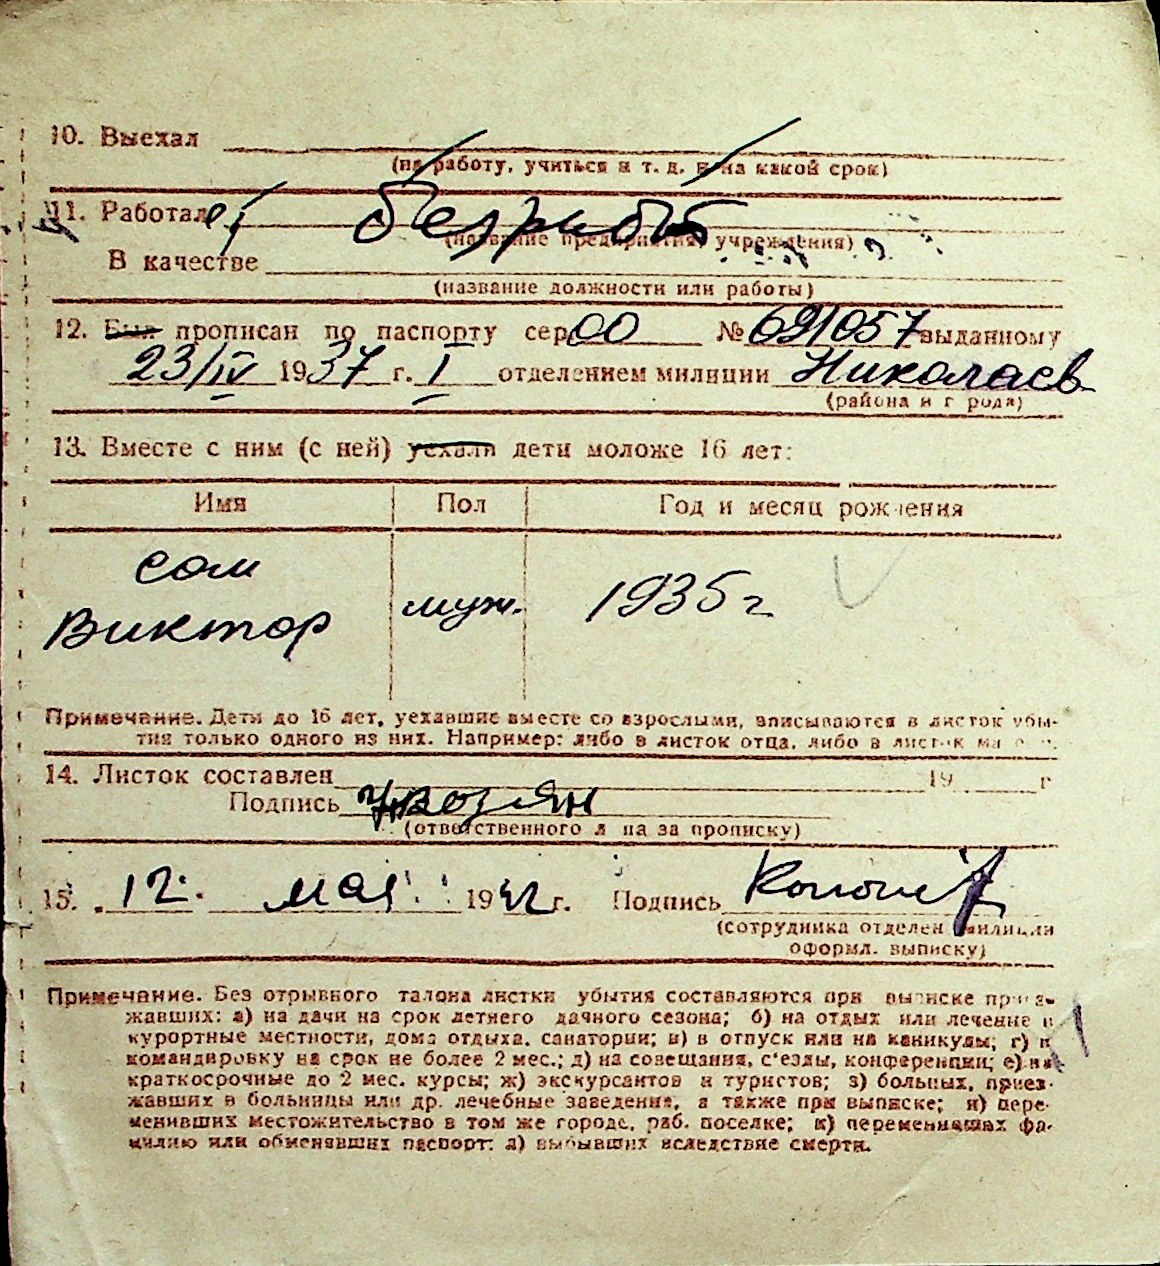 10. Выехал
(на работу, учиться и т. д. и на какой срок)
11. Работает
(название предприятия, учреждения)
В качестве
(название должности или работы)
12. Был прописан по паспорту сер 00 № 691057 выданному
23/IV 1937 г. I отделением милиции Николаев
(района и города)
13. Вместе с ним (с ней) уехали дети моложе 16 лет:
Имя Пол Год и месяц рождения
сын
Виктор муж. 1935 г
Примечание. Дети до 16 лет, уехавшие вместе со взрослыми, вписываются в листок убы-
тия только одного из них. Например: либо в листок отца, либо в листок матери.
14. Листок составлен 19 г
Подпись
(ответственного лица за прописку)
15. 12. мая 1942 г. Подпись
(сотрудника отделен милиции
оформл. выписку)
Примечание. Без отрывного талона листки убытия составляются при выписке приез-
жавших: а) на дачи на срок летнего дачного сезона; б) на отдых или лечение в
курортные местности, дома отдыха, санатории; в) в отпуск или на каникулы; г) в
командировку на срок не более 2 мес.; д) на совещания, с'езды, конференции; е) на
краткосрочные до 2 мес. курсы; ж) экскурсантов и туристов; з) больных, приез-
жавших в больницы или др. лечебные заведения, а также при выписке; и) пере-
менивших местожительство в том же городе, раб. поселке; к) переменивших фа-
милию или обменявших паспорт; л) выбывших вследствие смерти.